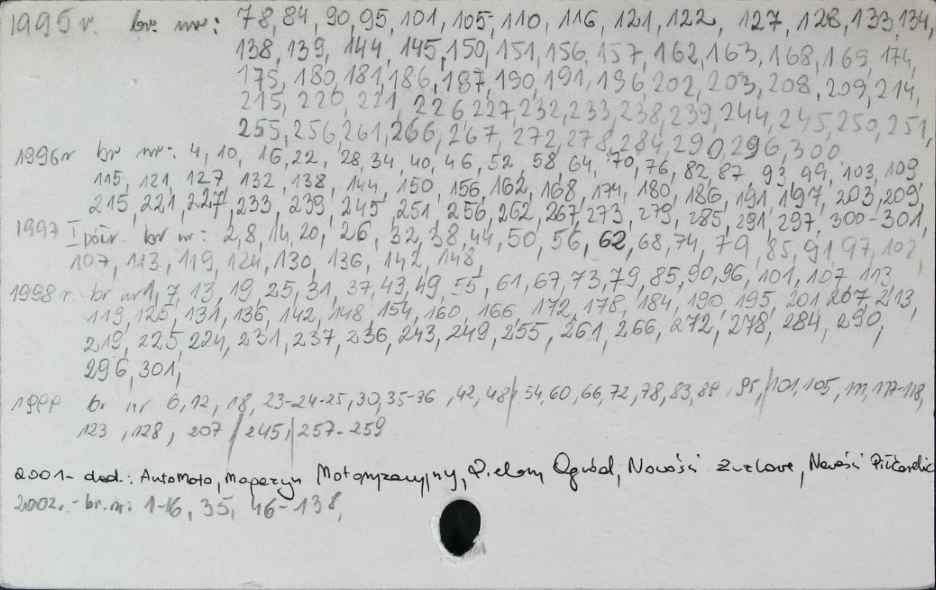 1995 r. br. nr: 78, 84, 90, 95, 101, 105, 110, 116, 121, 122, 127, 128, 133, 134,
138, 139, 144, 145, 150, 151, 156, 157, 162, 163, 168, 169, 174,
175, 180, 181, 186, 187, 190, 191, 196, 202, 203, 208, 209, 214,
215, 220, 221, 226, 227, 232, 233, 238, 239, 244, 245, 250, 251,
255, 256, 261, 266, 267, 272, 278, 284, 290, 296, 300
1996 r br nr: 4, 10, 16, 22, 28, 34, 40, 46, 52, 58, 64, 70, 76, 82, 87, 93, 99, 103, 109
115, 121, 127, 132, 138, 144, 150, 156, 162, 168, 174, 180, 186, 191, 197, 203, 209,
215, 221, 227, 233, 239, 245, 251, 256, 262, 267, 273, 279, 285, 291, 297, 300-301,
1997 I półr. br nr: 2, 8, 14, 20, 26, 32, 38, 44, 50, 56, 62, 68, 74, 79, 85, 91, 97, 102,
107, 113, 119, 124, 130, 136, 142, 148
1998 r. br nr 1, 7, 13, 19, 25, 31, 37, 43, 49, 55, 61, 67, 73, 79, 85, 90, 96, 101, 107, 113,
119, 125, 131, 136, 142, 148, 154, 160, 166, 172, 178, 184, 190, 195, 201, 207, 213,
219, 225, 224, 231, 237, 236, 243, 249, 255, 261, 266, 272, 278, 284, 290,
296, 301,
1999 br nr 6, 12, 18, 23-24-25, 30, 35-36, 42, 48, 54, 60, 66, 72, 78, 83, 89, 95, 101, 105, 111, 117-118,
123, 128, 207, 245, 257-259
2001- dod.: AutoMoto, Magazyn Motoryzacyjny, Zielony Ogród, Nowości Żużlowe, Nowości Piłkarskie
2002r.- br. nr: 1-16, 35, 46-138,